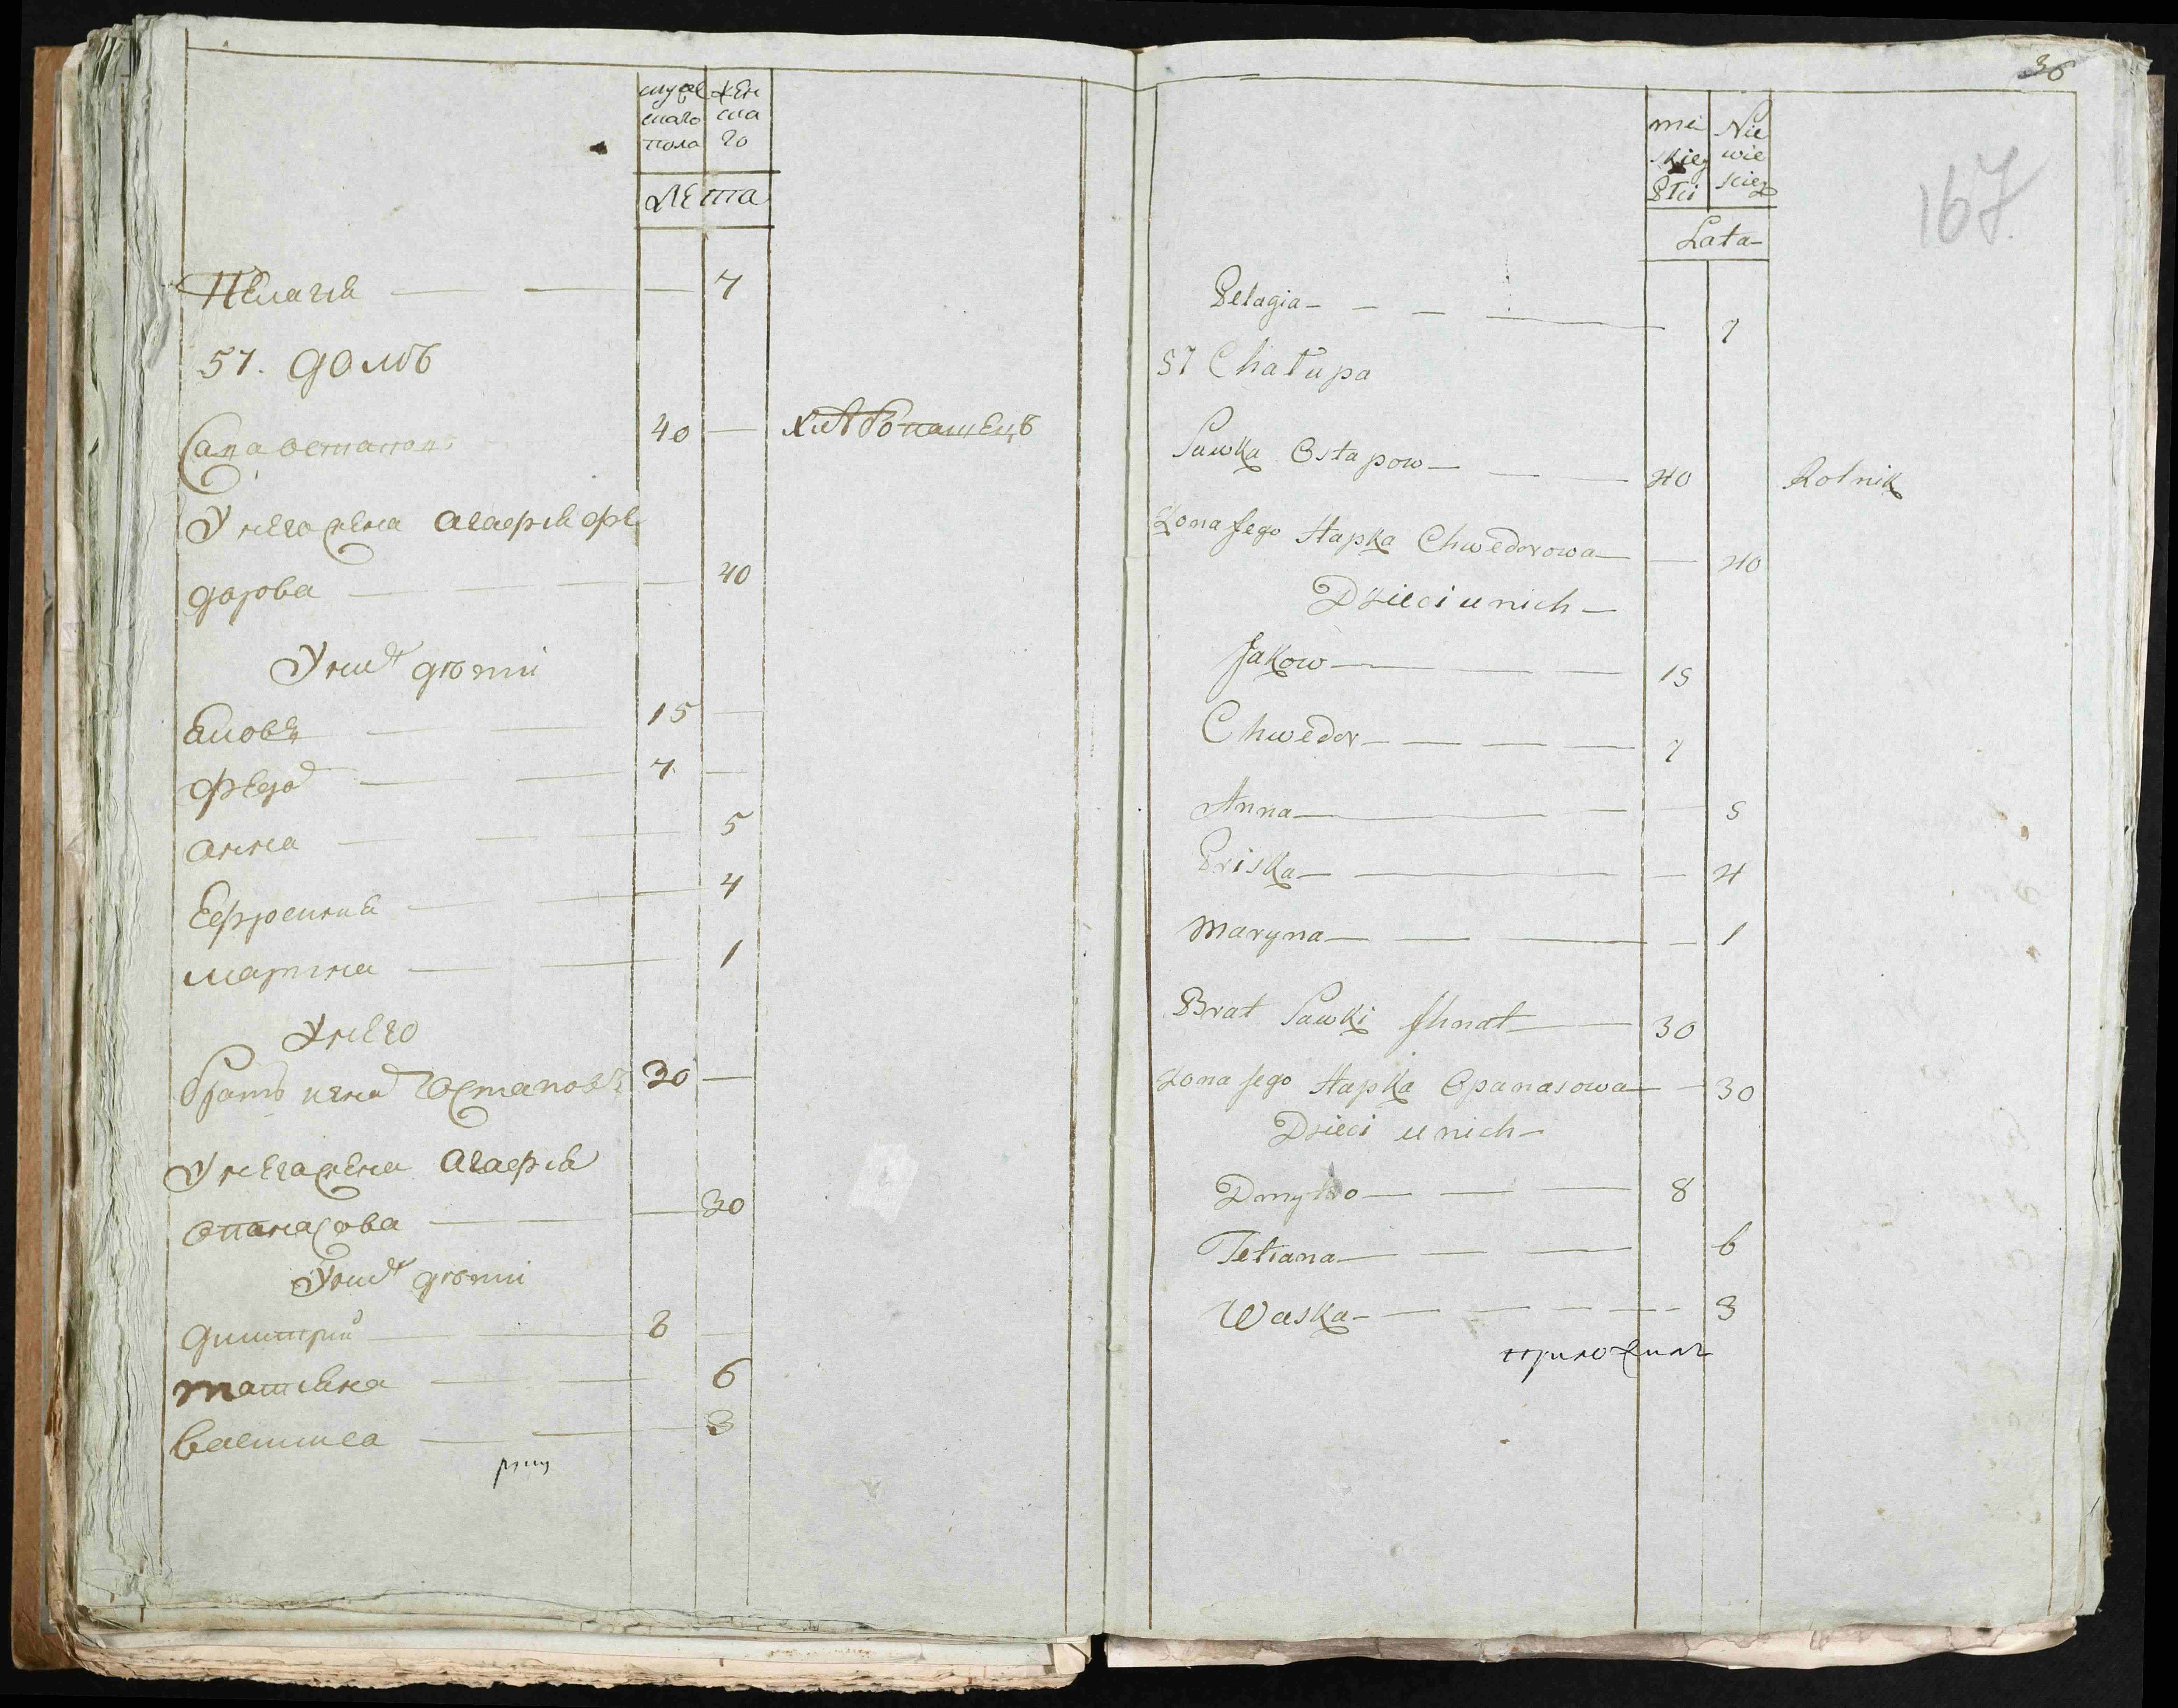 мужес жен
скаго ска
пола го
Лета
Пелагѣя — — — 7
57. домъ
Сава остаповъ 40 — хлѣбопашецъ
У него жена Агафия фе
дорова — — — 40
У них дѣти
Яковъ — — 15 —
Фѣдор — — 7 —
анна — — — 5
Ефросиния — — 4
марина — — 1
У него
братъ игнат Остаповъ 30 —
У него жена Агафия
опанасова — — — 30
У них дѣти
димитрий — — 8
татияна — — 6
василиса — — 3
36
167
mę Nie
skiej wie
Płci sciej
Lata
Pelagia — — — 7
57 Chałupa
Sawka Ostapow — — 40 Rolnik
Zona Jego Hapka Chwedorowa — — 40
Dzieci u nich —
Jakow — — — 15
Chwedor — — — — 7
Anna — — — 5
Priska — — — 4
Maryna — — — — 1
Brat Sawki Jhnat — — 30
Zona Jego Hapka Opanasowa — — 30
Dzieci u nich —
Dmytro — — — 8
Tetiana — — — 6
Waska — — — — — 3
приложилъ